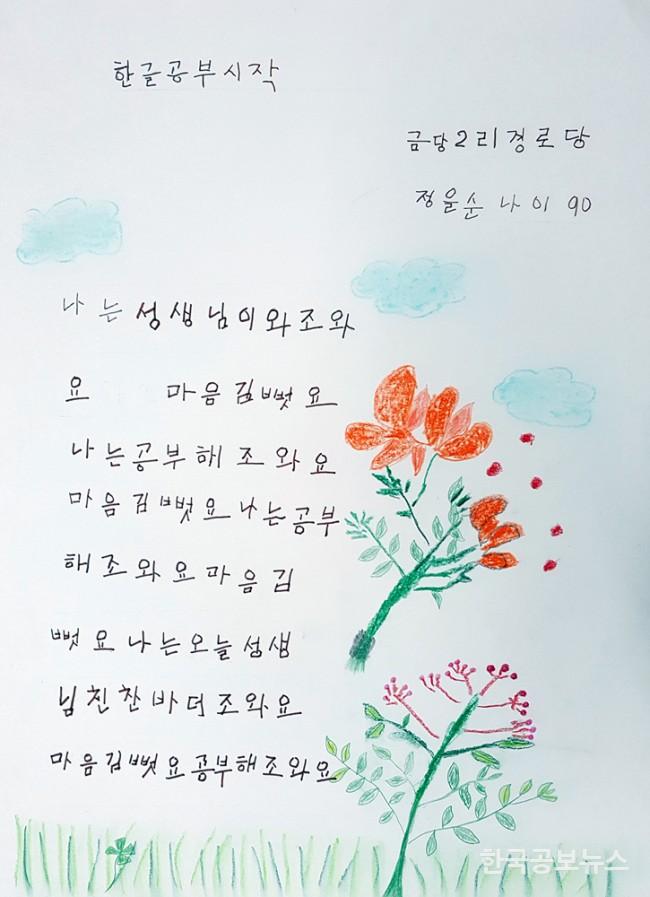 한글공부시작
금당2리경로당
정을순 나이 90
나는성생님이와조와
요 마음김뻣요
나는공부해조와요
마음김뻣요나는공부
해조와요마음김
뻣요나는오늘성생
님친찬바더조와요
마음김뻣요공부해조와요
한국공보뉴스